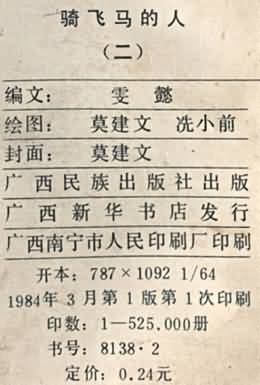 骑飞马的人
（二）
编文： 雯 懿
绘图： 莫建文 冼小前
封面： 莫建文
广西民族出版社出版
广西新华书店发行
广西南宁市人民印刷厂印刷
开本：787×1092 1/64
1984年3月第1版第1次印刷
印数：1—525.000册
书号：8138·2
定价：0.24元